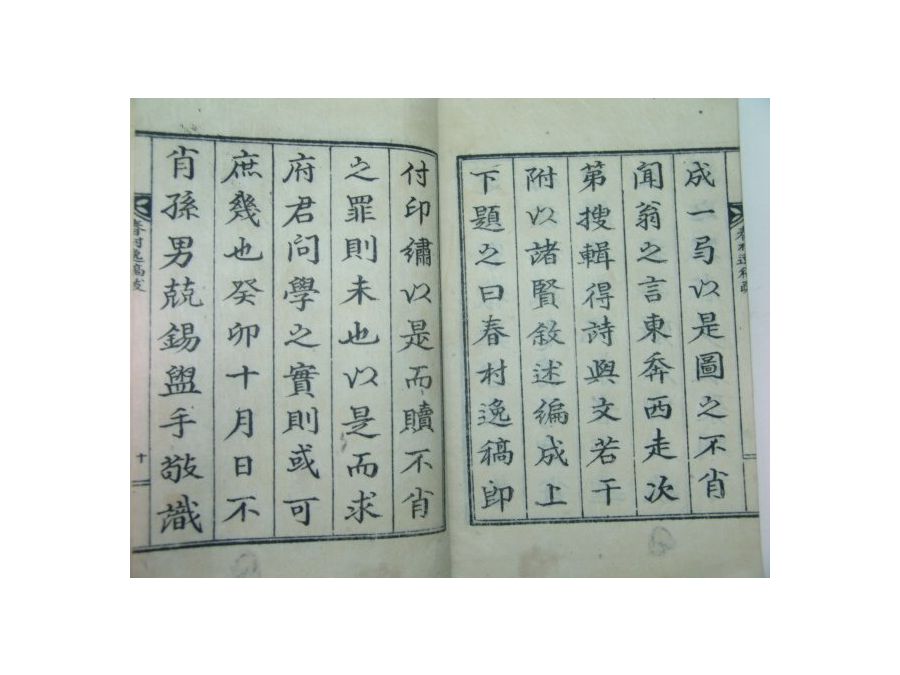 成一弓以是圖之不肖
聞翁之言東奔西走次
第搜輯得詩與文若干
附以諸賢敘述編成上
下題之曰春村逸稿卽
春村逸稿跋
付印繡以是而贖不肖
之罪則未也以是而求
府君問學之實則或可
庶幾也癸卯十月日不
肖孫男兢錫盥手敬識
春村逸稿跋
十